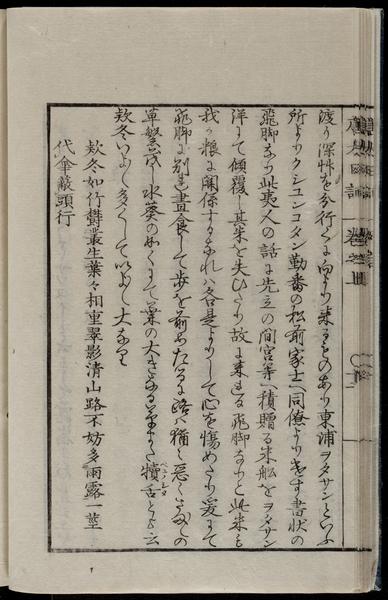 渡り深艸を分行くに向より来るものあり東浦ヲタサンといふ
所よりクシユンコタン勤番の松前家士へ同僚よりをする書状の
飛脚なり此夷人の話に先立の間宮等へ積贈る米船をヲタサン
洋にて傾覆し其米を失ひたり故に来れる飛脚なりと此米も
我々粮に関係する事なれハ各是よりして心を傷めたり爰にて
飛脚に別れ昼食して歩を前めたるに路ハ猶々悪しく
草繁茂し水葵の如くにて葉の大さ 犢舌といふ云
欵冬いよいよ多くして以よいよ大なり
欵冬如竹欝叢生葉々相重翠影清山路不妨多雨露一莖
代傘蔽頭行